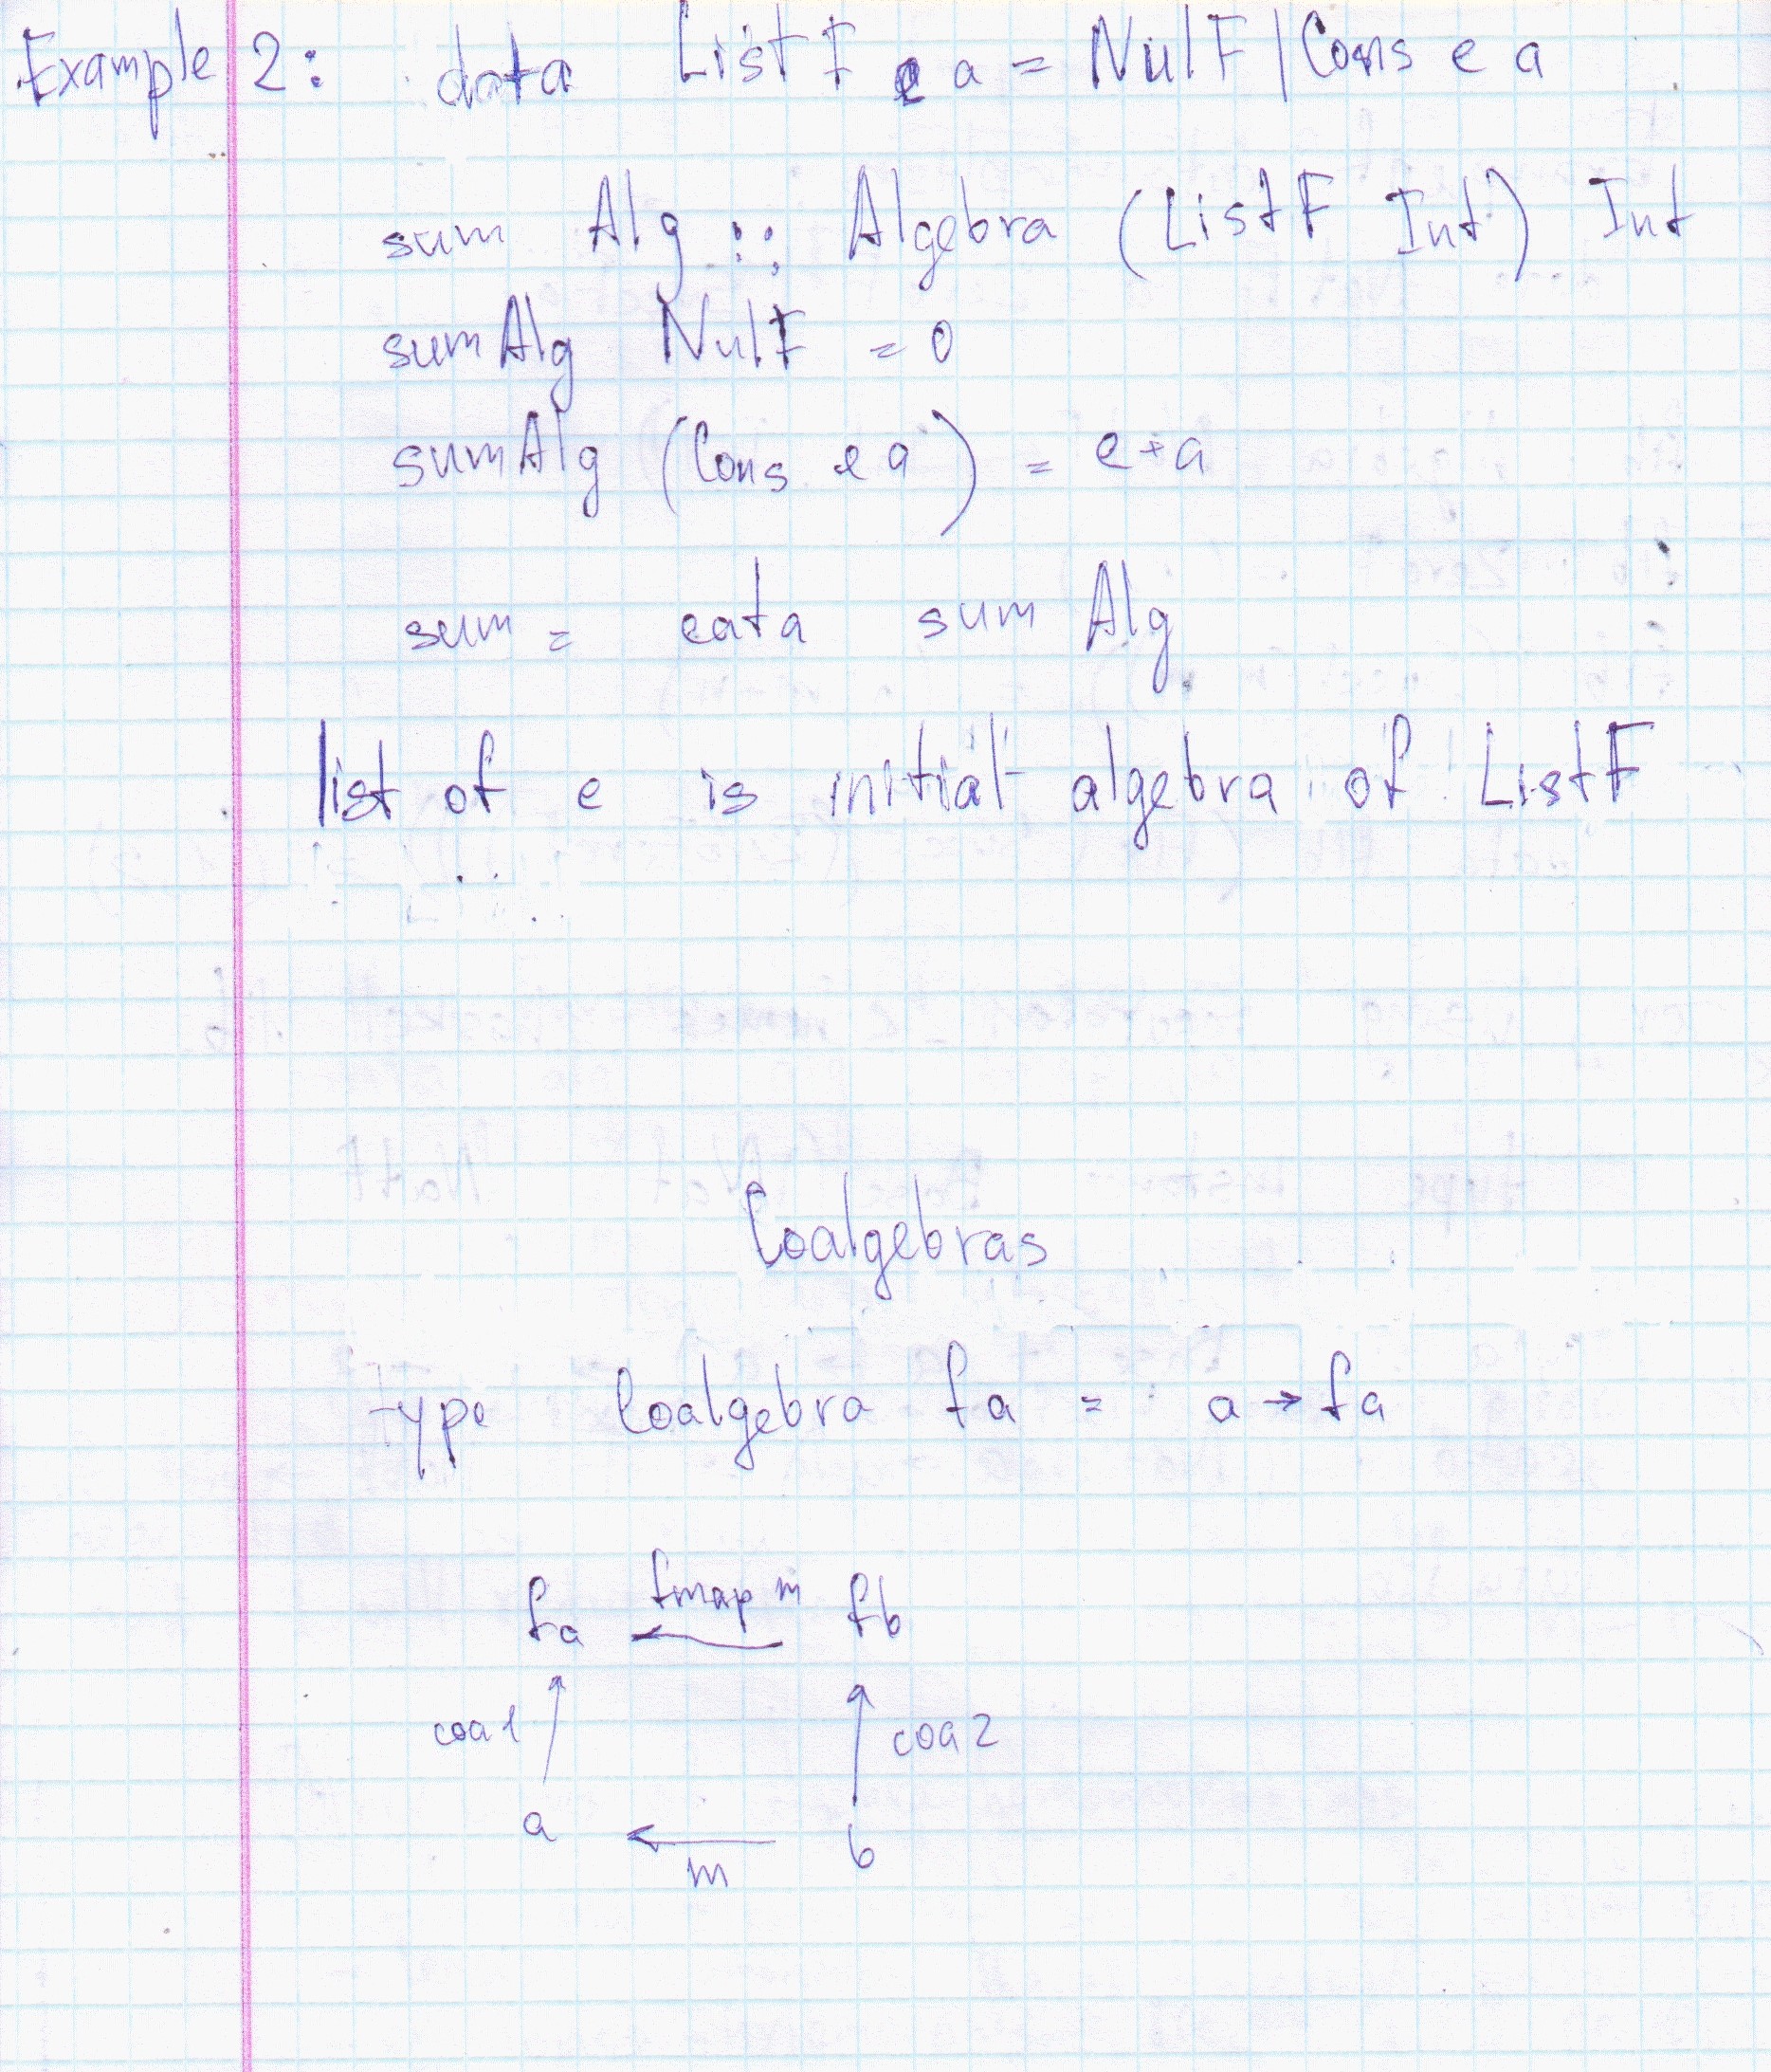 Example 2: data ListF e a = NulF | Cons e a
sum Alg :: Algebra (ListF Int) Int
sumAlg NulF = 0
sumAlg (Cons e a) = e+a
sum = cata sum Alg
list of e is initial algebra of ListF
Coalgebras
type Coalgebra f a = a → f a
fa fmap m fb
coa1 coa2
a m b